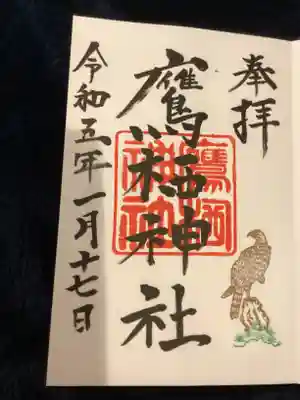 奉拝
鷹栖神社
令和五年一月十七日